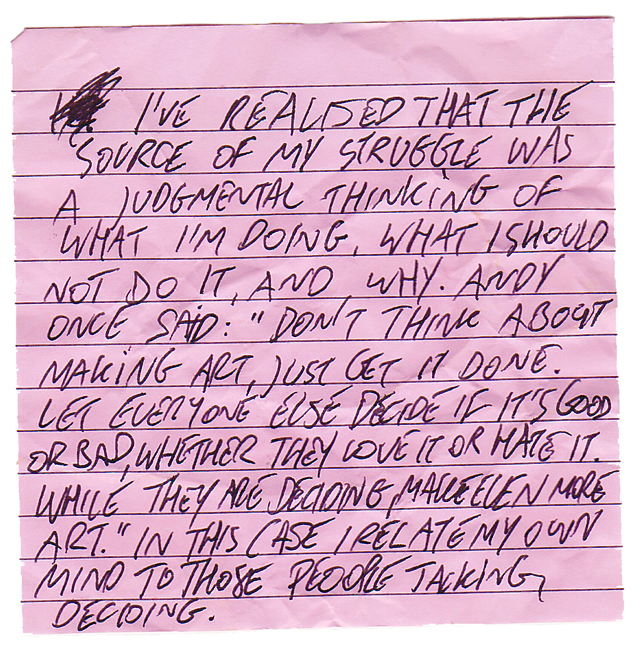 I'VE REALISED THAT THE
SOURCE OF MY STRUGGLE WAS
A JUDGMENTAL THINKING OF
WHAT I'M DOING, WHAT I SHOULD
NOT DO IT, AND WHY. ANDY
ONCE SAID: "DON'T THINK ABOUT
MAKING ART, JUST GET IT DONE.
LET EVERYONE ELSE DECIDE IF IT'S GOOD
OR BAD, WHETHER THEY LOVE IT OR HATE IT.
WHILE THEY ARE DECIDING, MAKE EVEN MORE
ART." IN THIS CASE I RELATE MY OWN
MIND TO THOSE PEOPLE TALKING,
DECIDING.